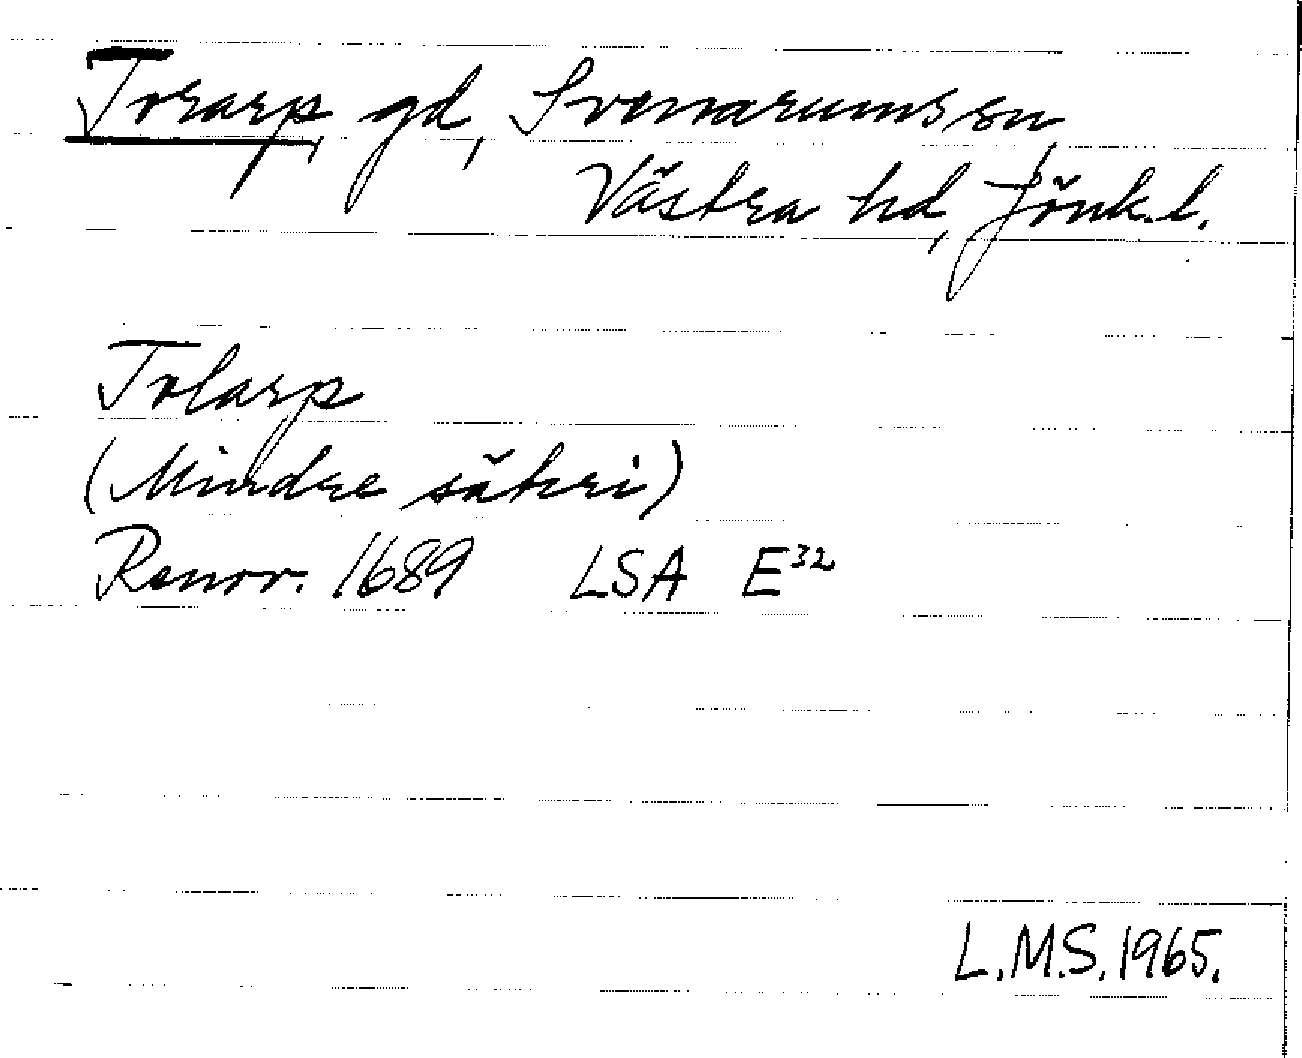 Torarp, gd, Svenarums sn
Västra hd, Jönk. l.
Tolarp
(Mindre säteri)
Renov. 1689 LSA E32
L.M.S. 1965.